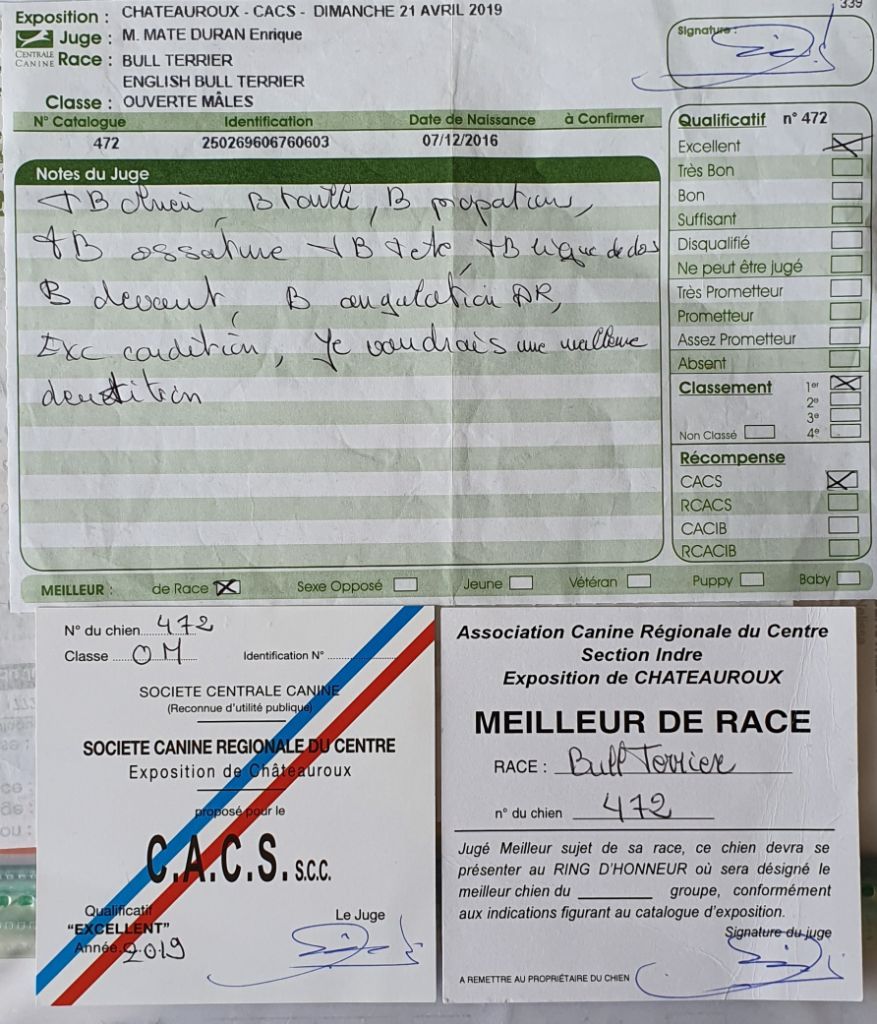 339
Exposition : CHATEAUROUX - CACS - DIMANCHE 21 AVRIL 2019
Juge : M. MATE DURAN Enrique
CENTRALE CANINE
Race : BULL TERRIER
ENGLISH BULL TERRIER
Classe : OUVERTE MÂLES
Signature :
N° Catalogue Identification Date de Naissance à Confirmer
472 250269606760603 07/12/2016
Notes du Juge
TB chien, B taille, B propations,
TB ossature TB tete, TB ligne de dos
B devant, B angulation AR,
Exc condition, Je voudrais une meilleure
dentition
Qualificatif n° 472
Excellent
Très Bon
Bon
Suffisant
Disqualifié
Ne peut être jugé
Très Prometteur
Prometteur
Assez Prometteur
Absent
Classement 1er
2e
3e
Non Classé 4e
Récompense
CACS
RCACS
CACIB
RCACIB
MEILLEUR : de Race Sexe Opposé Jeune Vétéran Puppy Baby
N° du chien 472
Classe OM Identification N°
SOCIETE CENTRALE CANINE
(Reconnue d'utilité publique)
SOCIETE CANINE REGIONALE DU CENTRE
Exposition de Châteauroux
proposé pour le
C.A.C.S. S.C.C.
Qualificatif
"EXCELLENT"
Année 2019
Le Juge
Association Canine Régionale du Centre
Section Indre
Exposition de CHATEAUROUX
MEILLEUR DE RACE
RACE : Bull Terrier
n° du chien 472
Jugé Meilleur sujet de sa race, ce chien devra se
présenter au RING D'HONNEUR où sera désigné le
meilleur chien du ________ groupe, conformément
aux indications figurant au catalogue d'exposition.
Signature du juge
A REMETTRE AU PROPRIÉTAIRE DU CHIEN